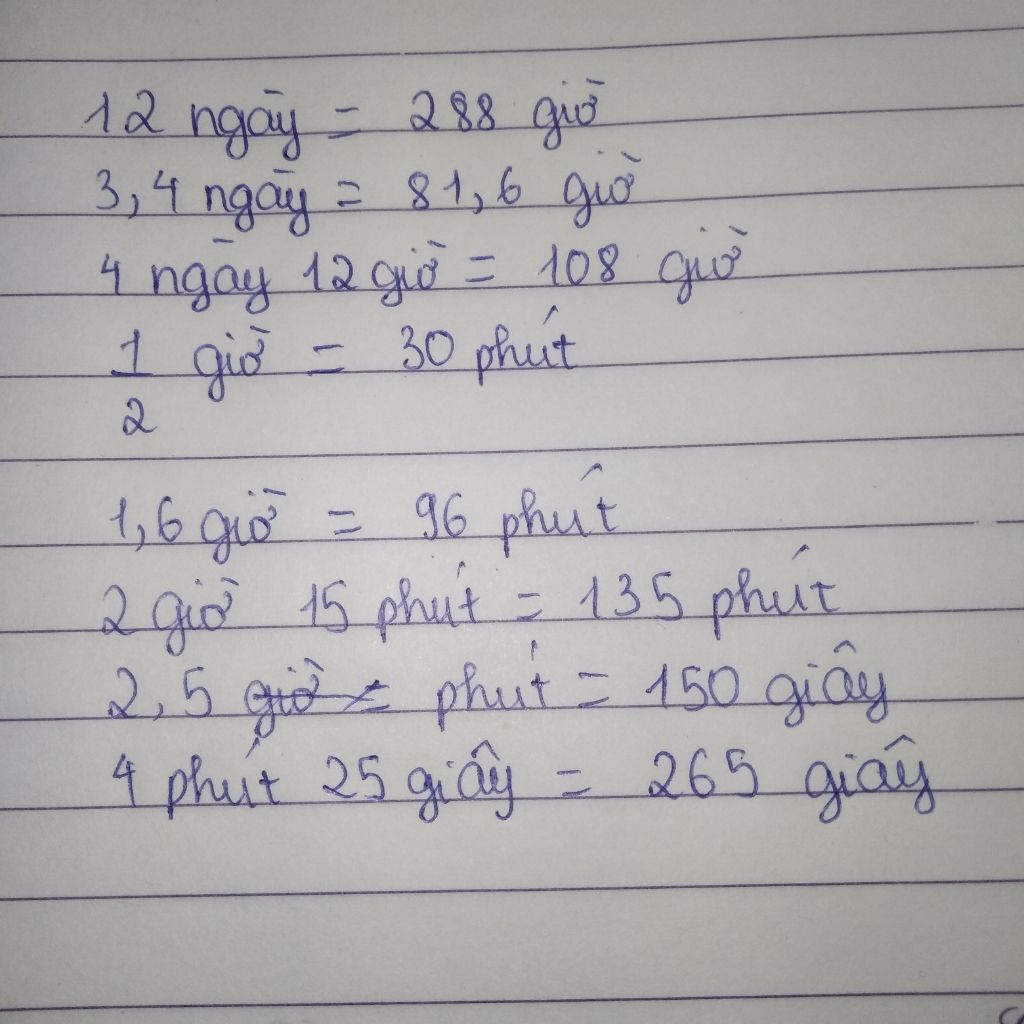 12 ngày = 288 giờ
3,4 ngày = 81,6 giờ
4 ngày 12 giờ = 108 giờ
1/2 giờ = 30 phút
1,6 giờ = 96 phút
2 giờ 15 phút = 135 phút
2,5 giờ = phút = 150 giây
4 phút 25 giây = 265 giây